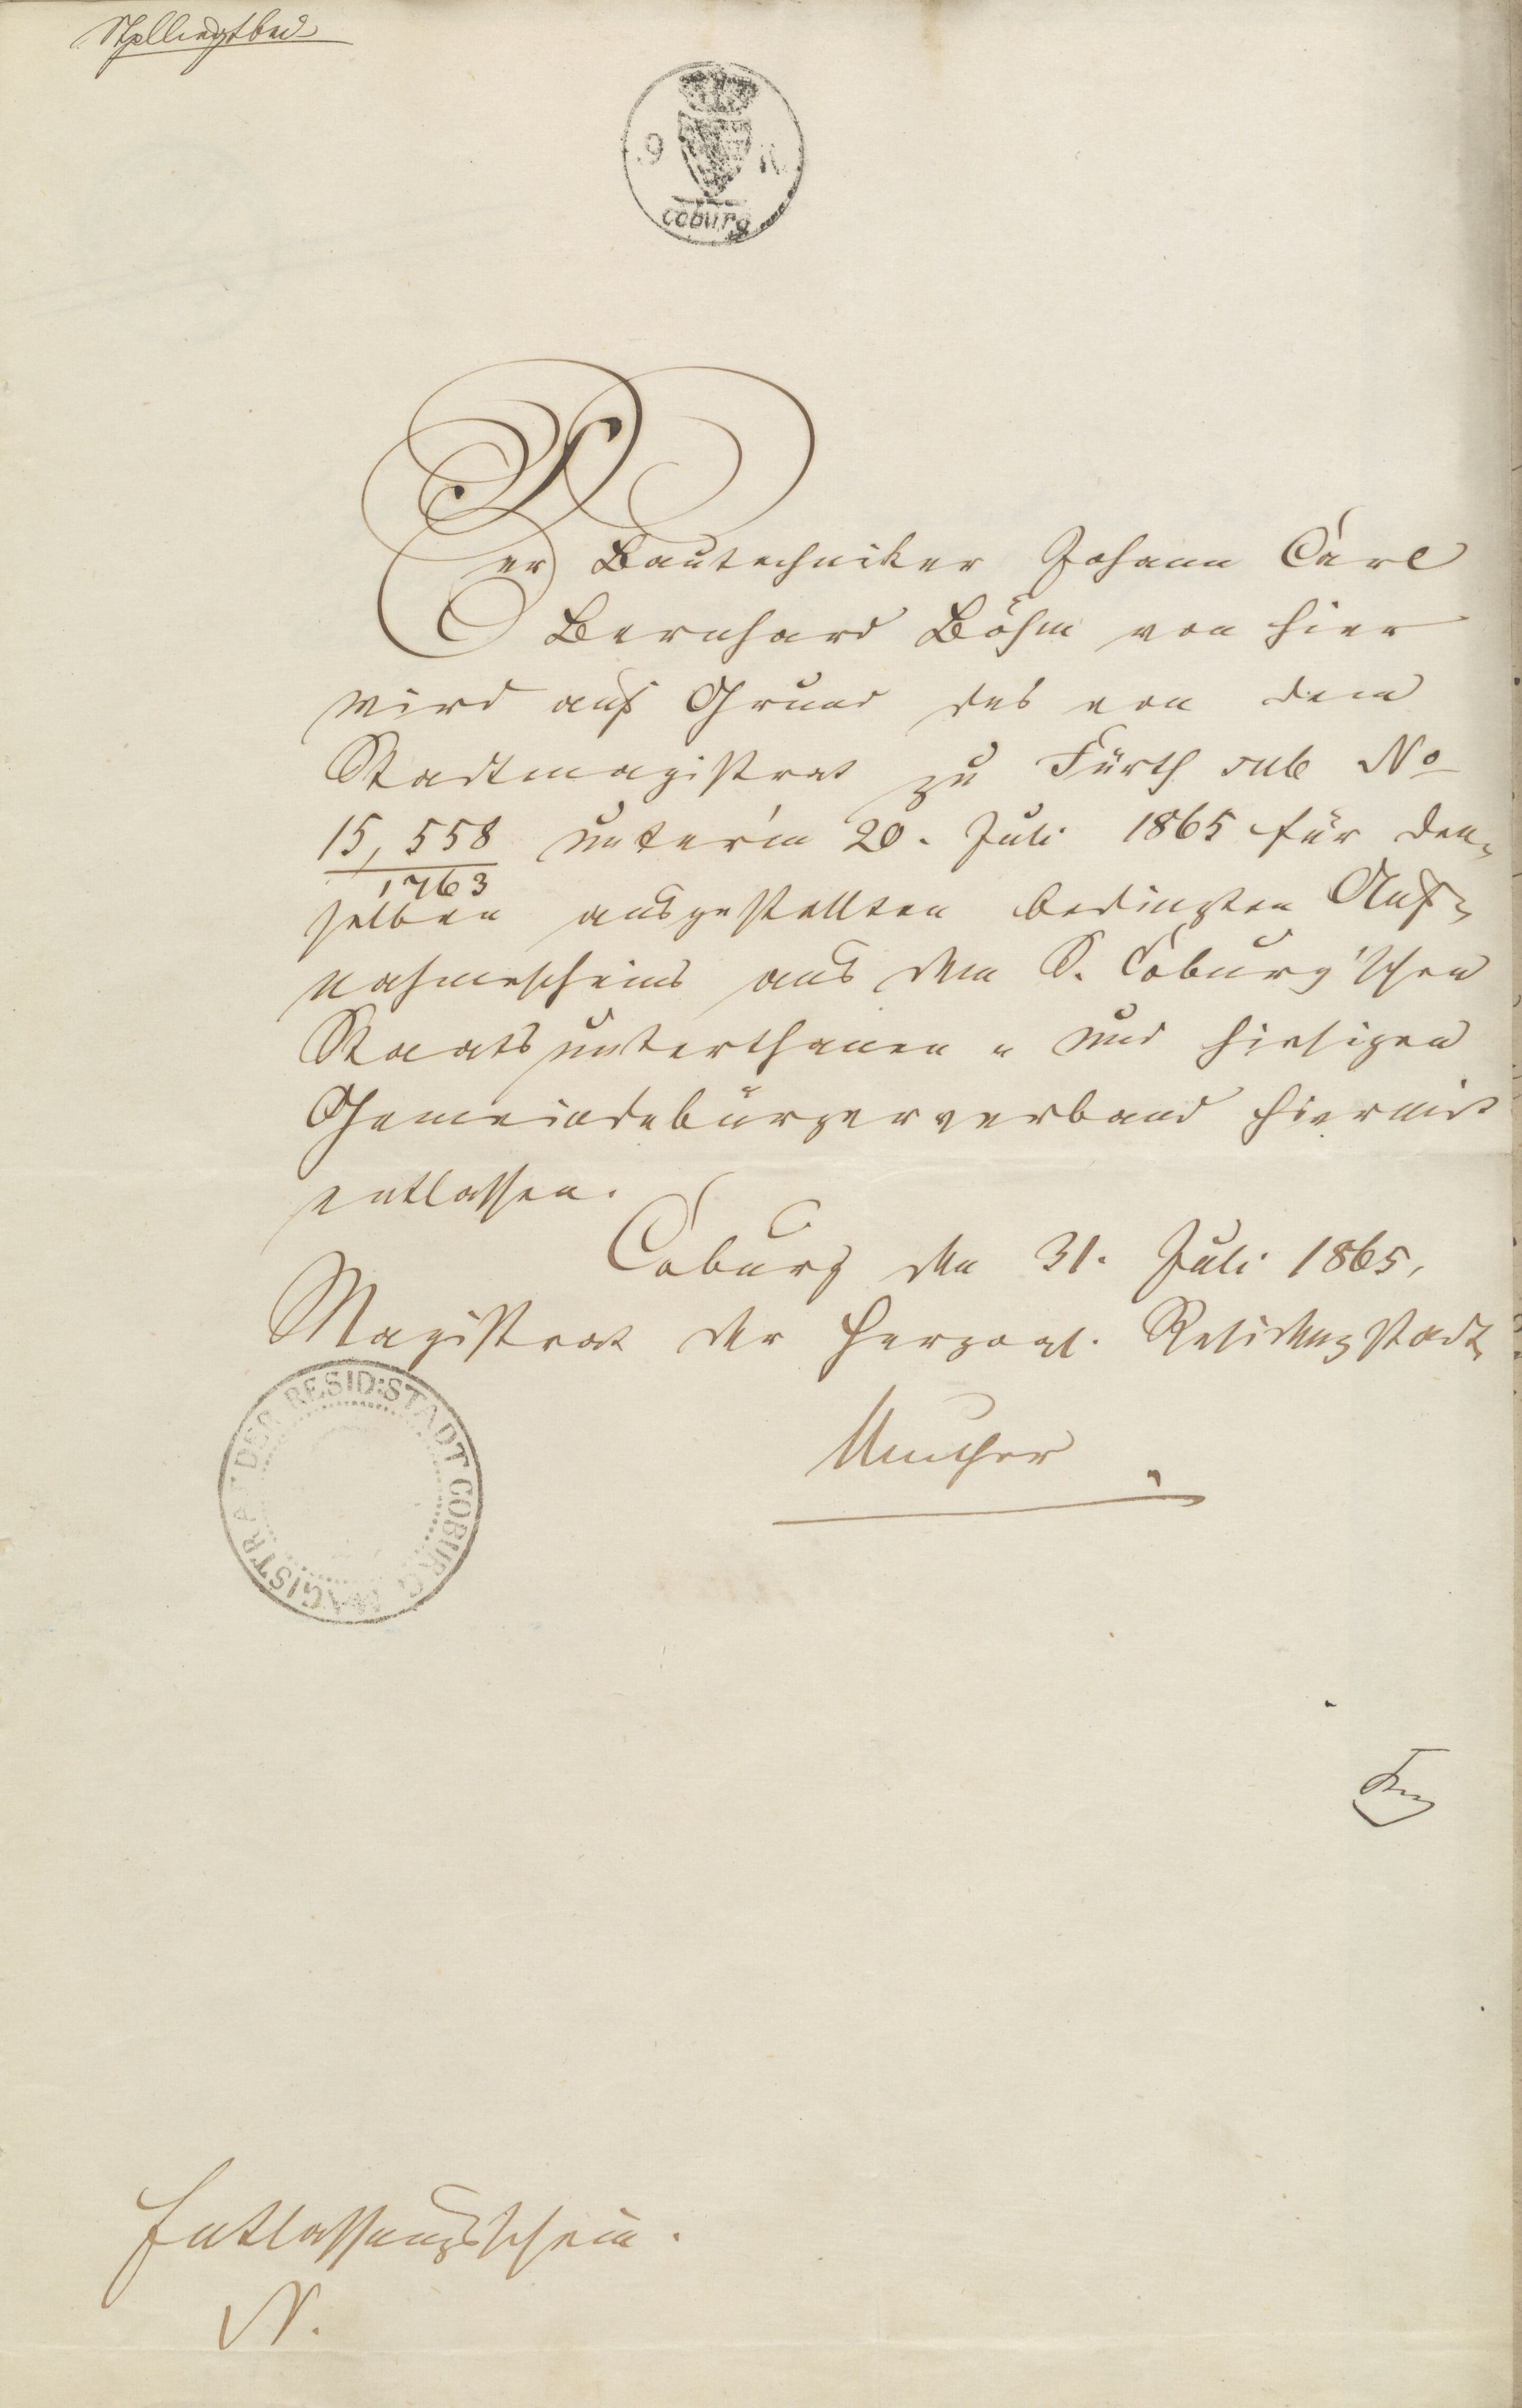 9 K
coburg
Der Bautechniker Johann Carl
Bernhard Böhm von hier
wird auf Grund des von dem
Stadtmagistrat zu Fürth sub No
15,558/1763 unterm 20. Juli 1865 für den-
selben ausgestellten bedingten Auf-
nahmescheins aus dem S. Coburg'schen
Staatsunterthanen- und hiesigen
Gemeindebürgerverband hiermit
entlassen.
Coburg den 31. Juli 1865,
Magistrat der Herzogl. Residenzstadt
MAGISTRAT DER RESID:STADT COBURG
Muther
Entlassungsschein.
N.